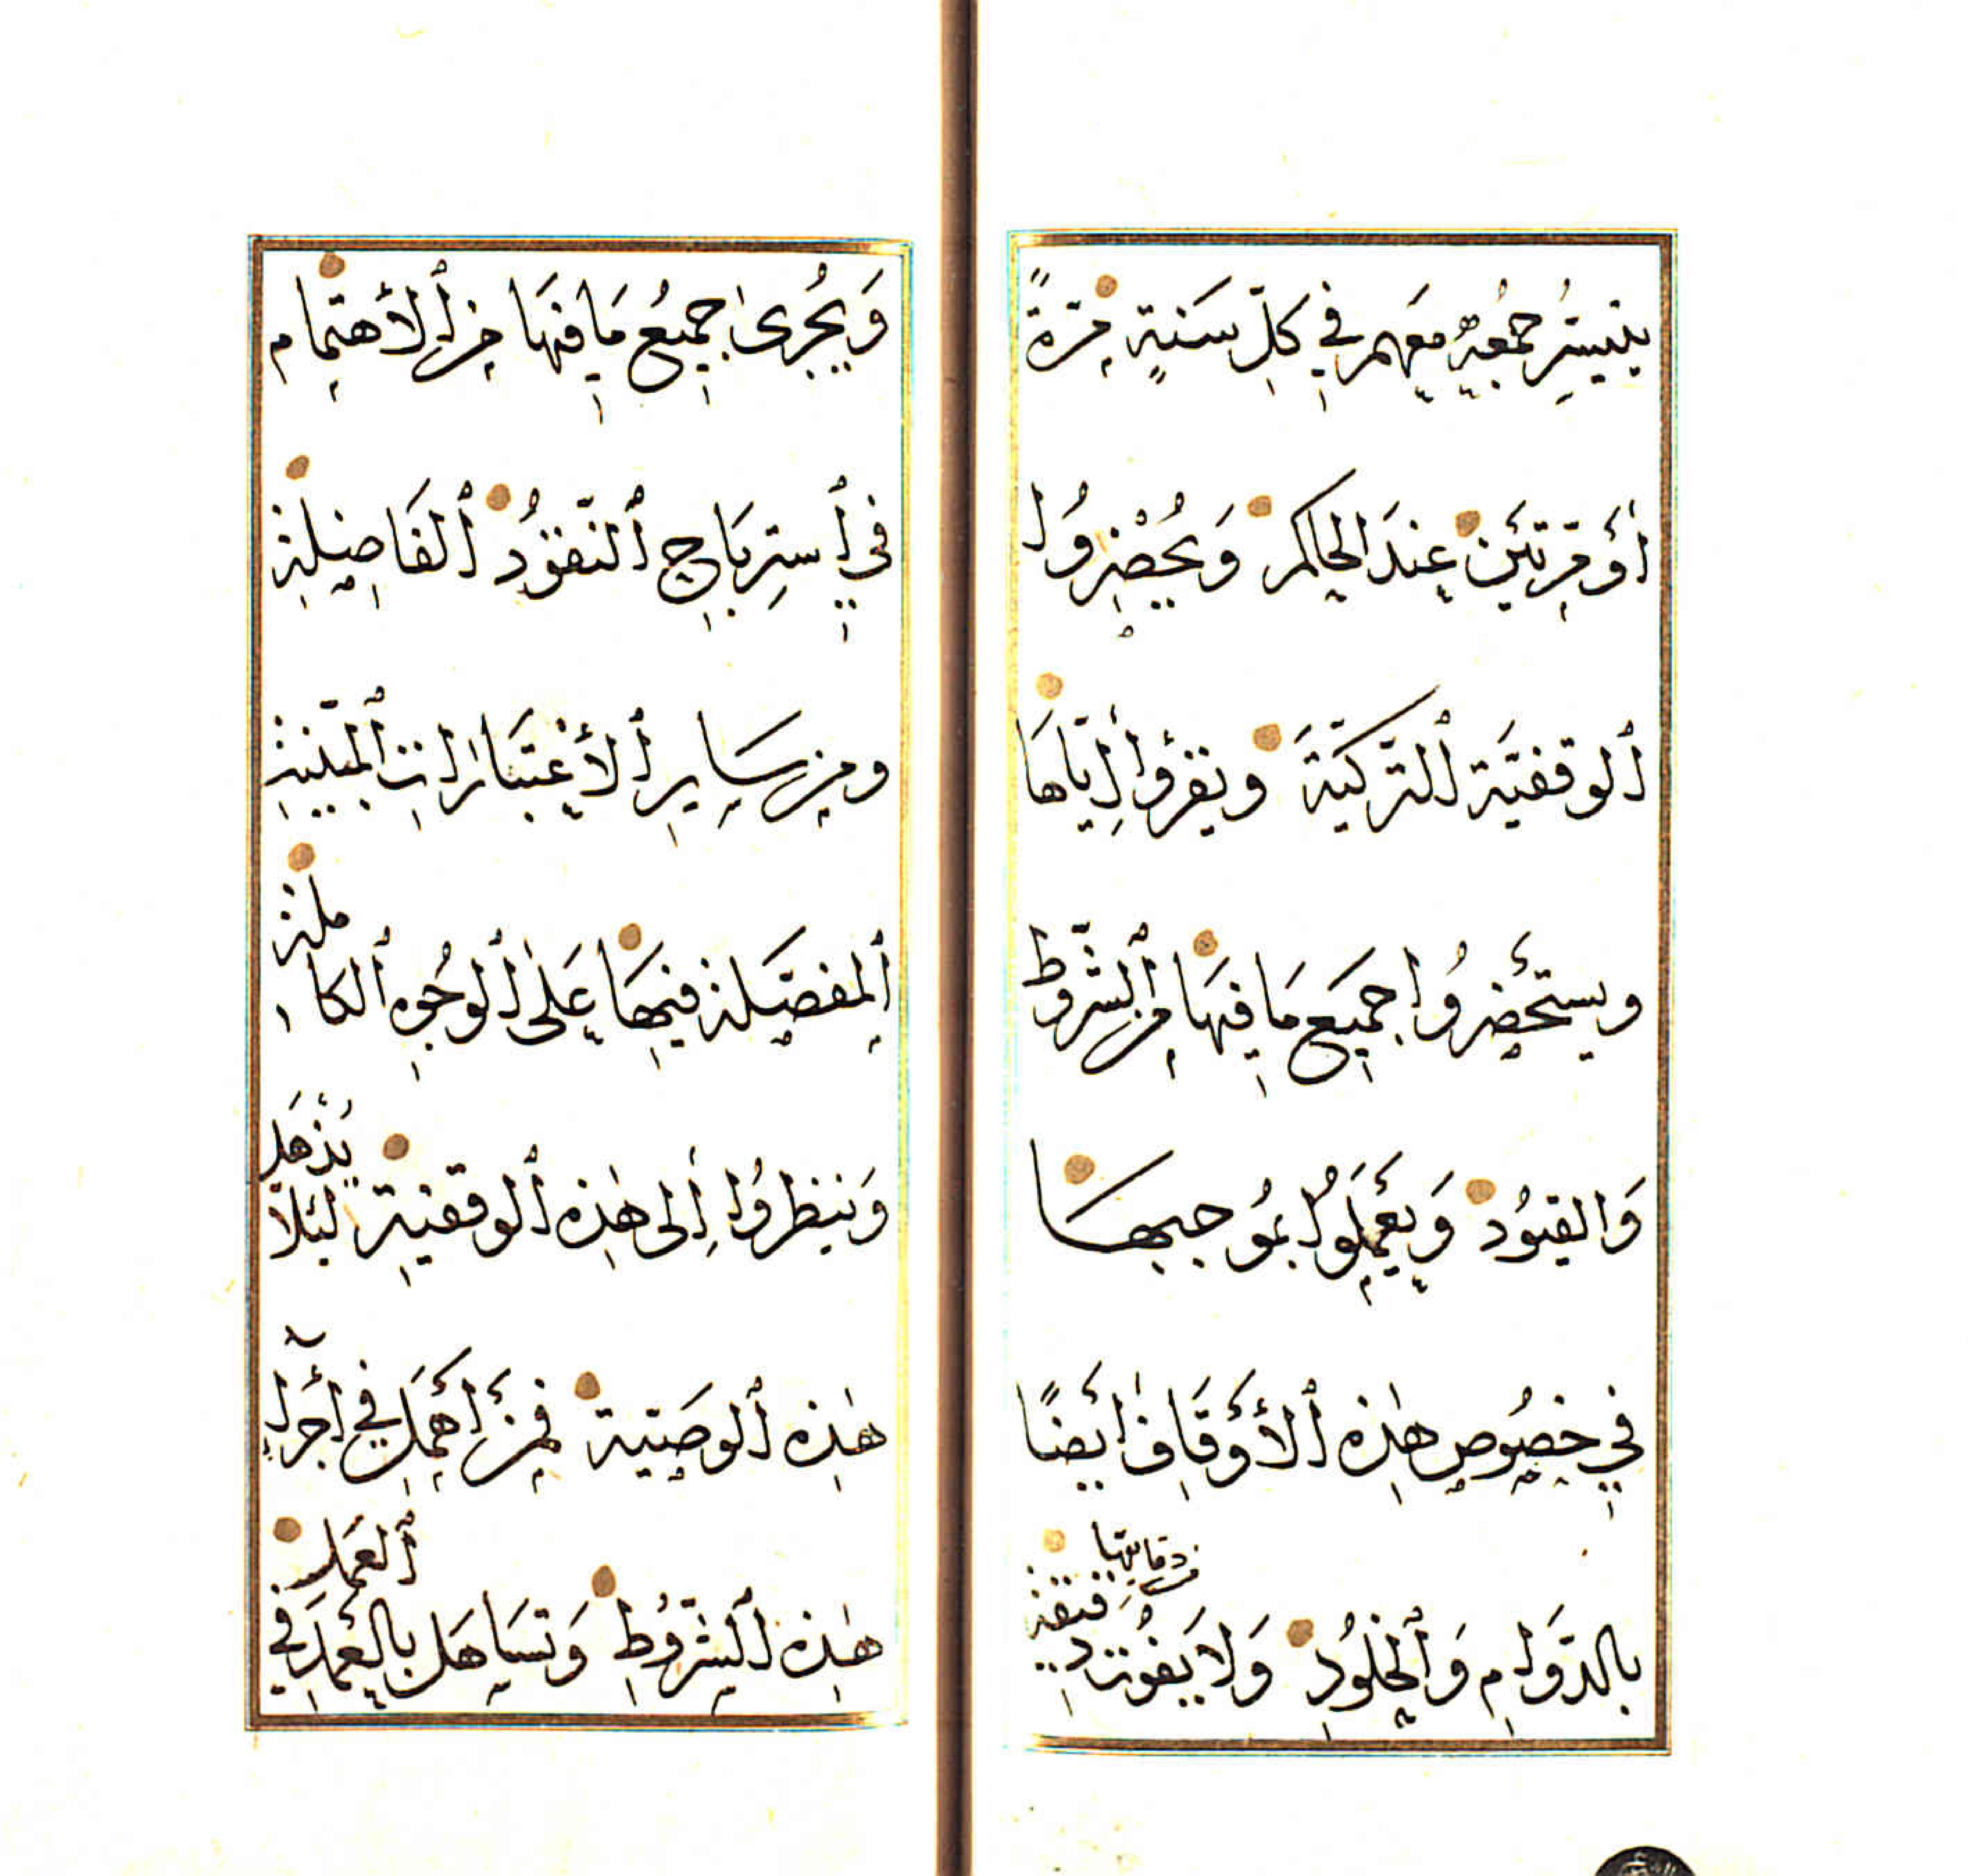 يتيسر جمعه معهم في كل سنة مرة
أو مرتين عند الحاكم ويحضروا
الوقفية التركية ويقرؤا إياها
ويستحضروا جميع ما فيها من الشروط
والقيود ويعملوا بموجبها
في خصوص هذه الأوقاف أيضا
بالدوام والخلود ولا يفوت دقيقة
من دقايقها
ويجرى جميع ما فيها من الاهتمام
في استرباح النقود الفاضلة
ومن ساير الاعتبارات المبينة
المفصلة فيها على الوجوه الكاملة
وينظروا إلى هذه الوقفية لئلا يذهل
هذه الوصية فمن أهمل في إجراء
هذه الشروط وتساهل بالعمد في
العمل